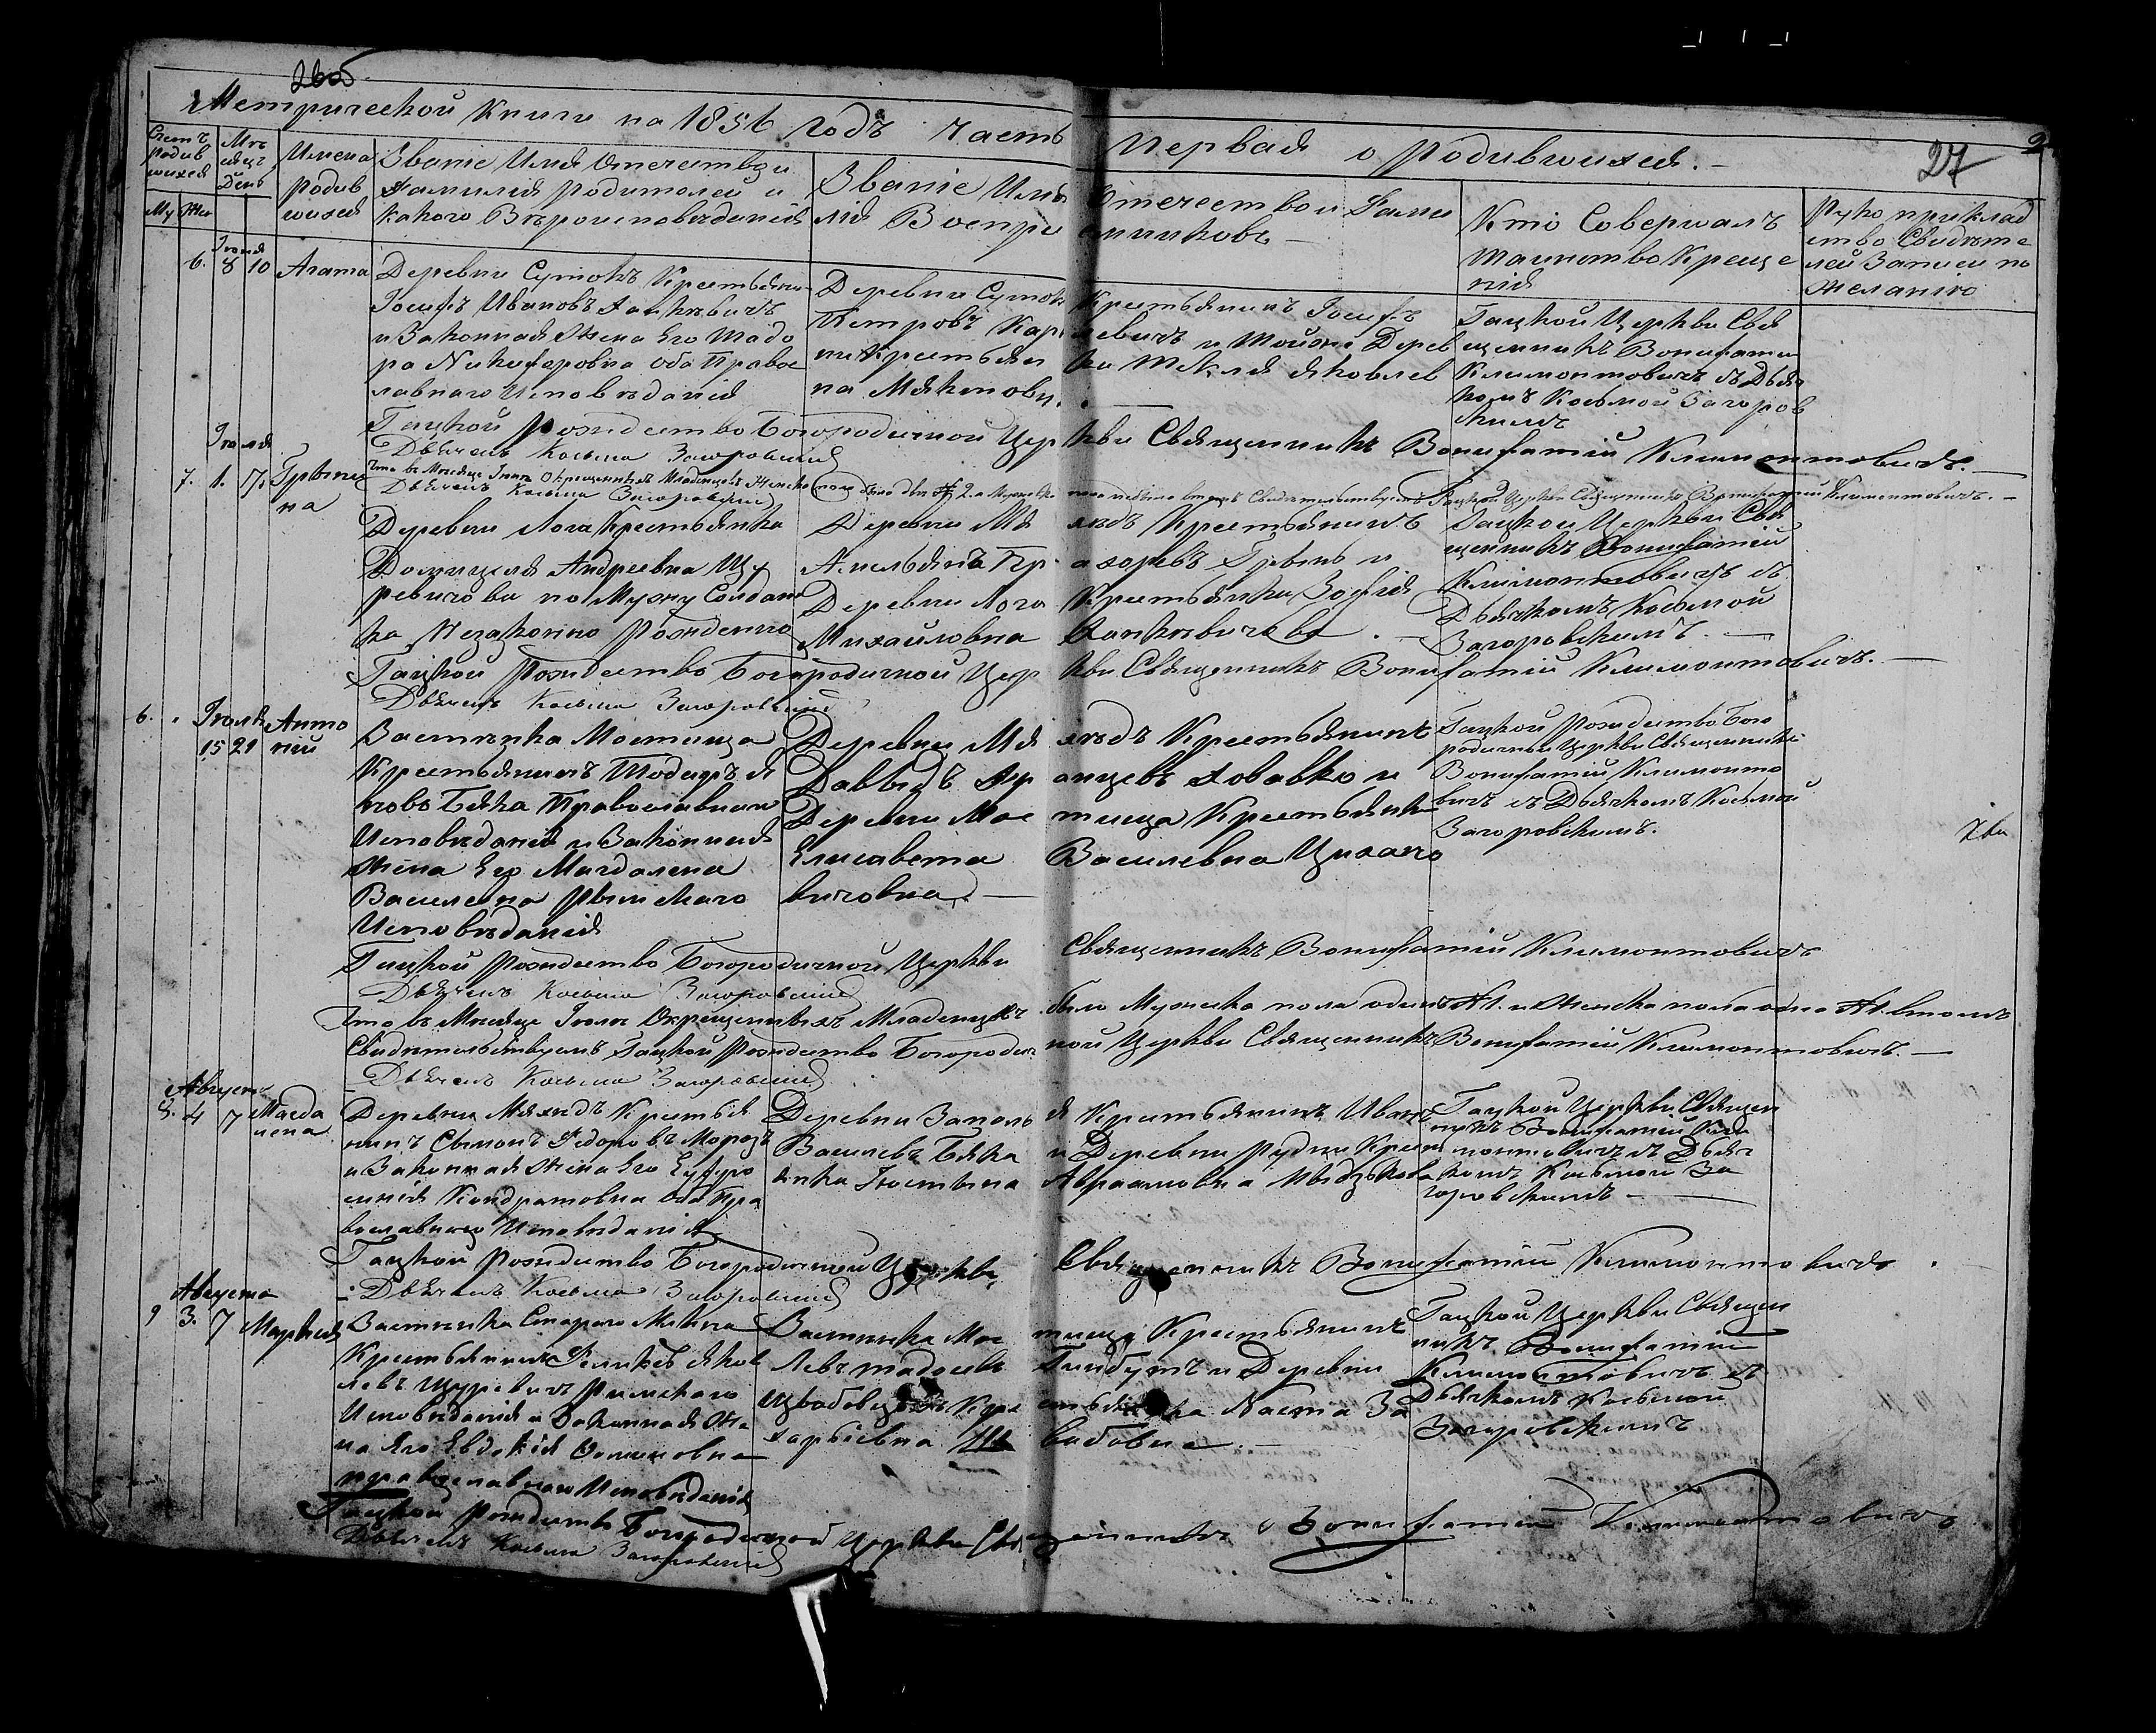 26об
27
Метрической Книги на 1856 годъ Часть Первая о Родившихся.
Счетъ родив шихся
Му Же
Мѣ сяцъ День
Имена родив шихся
Званіе Имя Отечество и
Фамилія родителей и
какого Вѣроисповѣданія
Званіе Имя Отечество и Фами
лія Воспри емниковъ
Кто Совершалъ
таинство Креще
нія
Руко приклад
ство Свидѣте
лей Записи по
желанію
6.
Іюня
8 10
Агата
Деревни Сутокъ Крестьянин
Іосифъ Ивановъ
и Законная Жена Его Тадо
ра Никиферовна Оба Право
славнаго Исповѣданія
Деревни Сутокъ Крестьянинъ Іосифъ
Петровъ
на Текля Яковлев
Гацкой Церкви Свя
щенникъ Вонифатій
Климонтовичъ съ Дьяч
комъ Косьмой Загоров
скимъ
Гацкой Рождество Богородичной Церкви Священникъ Вонифатій Климонтовичъ.
Дьячекъ Косьма Загоровскій
Что въ Мѣсяце Іюнѣ Окрещенныхъ Младенцевъ Женска
Гацкой Церкви Священникъ Вонифатій Климонтовичъ.
Дьячекъ Косьма Загоровскій
7.
Іюля
1. 7.
Деревни Лога Крестьянка
Андреевна Щу
ревичова по Мужу Солдат
ка Незаконно Рожденна
Деревни Мя хѣдъ Крестьянинъ
Деревни Лога Крестьянка Зофія
Михайловна
Гацкой Церкви Свя
щенникъ Вонифатій
Климонтовичъ съ
Дьячкомъ Косьмой
Загоровскимъ.
Гацкой Рождество Богородичной Церкви Священникъ Вонифатій Климонтовичъ.
Дьячекъ Косьма Загоровскій
6.
Іюля
15 21
Анто
ній
Застѣнка Мостища
Крестьянинъ Тодиръ Я
ковъ Бѣка Православнаго
Исповѣданія и Законная
Жена Его Магдалена
Василевна Рымскаго
Исповѣданія
Деревни Мя хѣдъ Крестьянинъ
Давыдъ
Деревни Мос тища Крестьянка
Елисавета Василевна Цихано
вичовна
Гацкой Рождество Бого
родичной Церкви Священникъ
Вонифатій Климонто
вичъ съ Дьячкомъ Косьмой
Загоровскимъ.
Гацкой Рождество Богородичной Церкви Священникъ Вонифатій Климонтовичъ
Дьячекъ Косьма Загоровскій
Что въ Мѣсяце Іюлѣ Окрещенныхъ Младенцевъ было Мужска пола одинъ №1. и Женска пола одно №1. въ томъ
Свидѣтельствуемъ Гацкой Рождество Богородичной Церкви Священникъ Вонифатій Климонтовичъ.
Дьячекъ Косьма Загоровскій
8.
Августа
4 7
Магда
лена
Деревни Мяхидъ Крестья
нинъ Сымонъ Федоровъ Морозъ
и Законная Жена Его Еуфро
синія Кондратовна Оба Пра
вославнаго Исповѣданія
Деревни Заполья Крестьянинъ Иванъ
Васильевъ Бѣка и Деревни Рудни Крест
янка Іюстына Авраамовна
Гацкой Церкви Священ
никъ Вонифатій Кли
монтовичъ съ Дьяч
комъ Косьмой За
горовскимъ
Гацкой Рождество Богородичной Церкви Священникъ Вонифатій Климонтовичъ
Дьячекъ Косьма Загоровскій
9
Августа
3. 7
Застѣнка Стараго
Крестьянинъ Феликсъ Яков
левъ Щуревичъ Римскаго
Исповѣданія и Законная Же
на Его Евдокія Осиповна
православнаго Исповѣданія
Застѣнка Мос тища Крестьянинъ
Левъ Тадеевъ и Деревни
Наста За
харьевна
Гацкой Церкви Священ
никъ Вонифатій
Климонтовичъ съ
Дьячкомъ Косьмой
Загоровскимъ
Гацкой Рождество Богородичной Церкви Священникъ Вонифатій Климонтовичъ
Дьячекъ Косьма Загоровскій